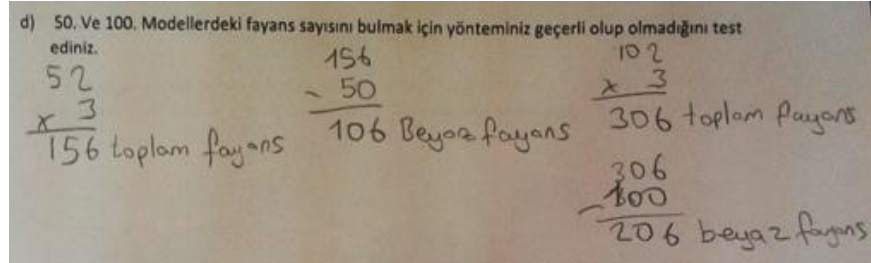 d) 50. Ve 100. Modellerdeki fayans sayısını bulmak için yönteminiz geçerli olup olmadığını test
ediniz.
52
x 3
156 toplam fayans
156
- 50
106 Beyaz fayans
102
x 3
306 toplam fayans
306
- 100
206 beyaz fayans